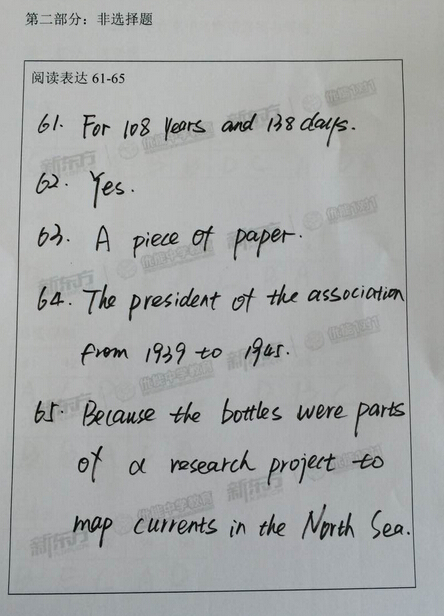 第二部分：非选择题
阅读表达 61-65
61. For 108 years and 138 days.
62. Yes.
63. A piece of paper.
64. The president of the association
from 1939 to 1945.
65. Because the bottles were parts
of a research project to
map currents in the North Sea.